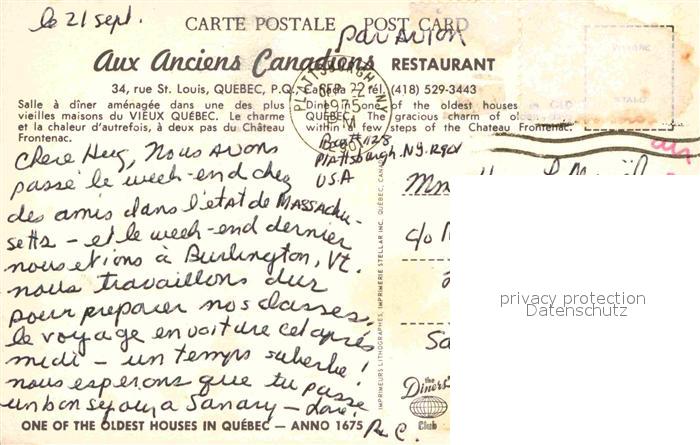 le 21 sept.
CARTE POSTALE POST CARD
par avion
Aux Anciens Canadiens RESTAURANT
34, rue St. Louis, QUEBEC, P.Q., Canada — tél. (418) 529-3443
Salle à dîner aménagée dans une des plus vieilles maisons du VIEUX QUÉBEC. Le charme et la chaleur d'autrefois, à deux pas du Château Frontenac.
Dine in one of the oldest houses in OLD QUEBEC. The gracious charm of olden within a few steps of the Chateau Frontenac.
PLATTSBURGH NY
SEP 22
Plattsburgh. N.Y.
U.S.A
Chere Hug, Nous avons
passé le week-end chez
des amis dans l'état de Massachu-
setts – et le week-end dernier
nous etions à Burlington, Vt.
nous travaillons dur
pour preparer nos classes.
le voyage en voiture cet après
midi – un temps suberbe!
nous esperons que tu passe
un bon sejour à Sanary –
P. C.
Mm
c/o
Sa
IMPRIMEURS LITHOGRAPHES, IMPRIMERIE STELLAR INC. QUÉBEC, CANADA
the Diners' Club
ONE OF THE OLDEST HOUSES IN QUÉBEC — ANNO 1675
privacy protection
Datenschutz